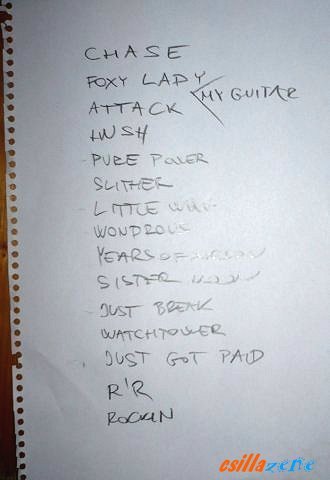 CHASE
FOXY LADY
MY GUITAR
ATTACK
HUSH
PURE POWER
SLITHER
LITTLE
WONDROUS
YEARS OF
SISTER
JUST BREAK
WATCHTOWER
JUST GOT PAID
R'R
ROCKIN
csillazene